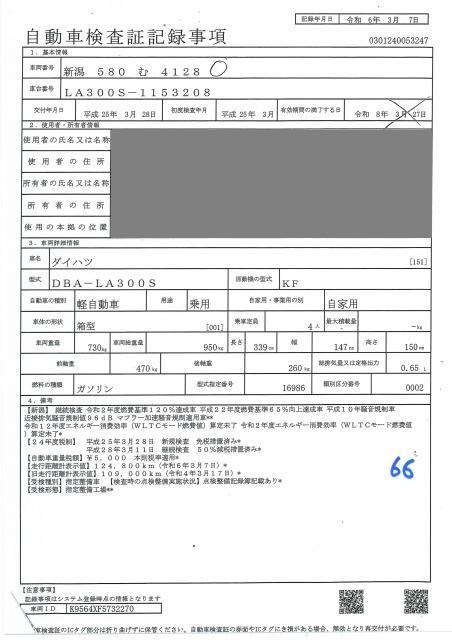 記録年月日 令和 6年 3月 7日
自動車検査証記録事項
0301240053247
1．基本情報
車両番号 新潟 580 む 4128
車台番号 LA300S－1153208
交付年月日 平成 25年 3月 28日 初度検査年月 平成 25年 3月 有効期間の満了する日 令和 8年 3月27日
2．使用者・所有者情報
使用者の氏名又は名称
使用者の住所
所有者の氏名又は名称
所有者の住所
使用の本拠の位置
3．車両詳細情報
車名 ダイハツ [151]
型式 DBA－LA300S 原動機の型式 KF
自動車の種別 軽自動車 用途 乗用 自家用・事業用の別 自家用
車体の形状 箱型 [001] 乗車定員 4人 最大積載量 －kg
車両重量 730kg 車両総重量 950kg 長さ 339cm 幅 147cm 高さ 150cm
前軸重 470kg 後軸重 260kg 総排気量又は定格出力 0.65 L
燃料の種類 ガソリン 型式指定番号 16986 類別区分番号 0002
4．備考
【新潟】 継続検査 令和２年度燃費基準１２０％達成車 平成２２年度燃費基準６５％向上達成車 平成１０年騒音規制車
近接排気騒音規制値９６ｄＢ マフラー加速騒音規制適用車**
令和１２年度エネルギー消費効率（ＷＬＴＣモード燃費値）算定未了 令和２年度エネルギー消費効率（ＷＬＴＣモード燃費値
）算定未了*
【２４年度税制】 平成２５年３月２８日 新規検査 免税措置済み*
平成２８年３月１１日 継続検査 ５０％減税措置済み*
【自動車重量税額】￥５，０００ 本則税率適用*
【走行距離計表示値】１２４，８００ｋｍ（令和６年３月７日）*
【旧走行距離計表示値】１０９，０００ｋｍ（令和４年３月１７日）*
【受検種別】指定整備車 【検査時の点検整備実施状況】点検整備記録簿記載あり*
【受検形態】指定整備工場**
66
【注意事項】
記録事項はシステム登録時点の情報となります
車両ID K9564XF5732270
車検査証のICタグ部分は折り曲げずに保管ください。自動車検査証の券面やICタグにき損がある場合、無効となり再交付が必要です。